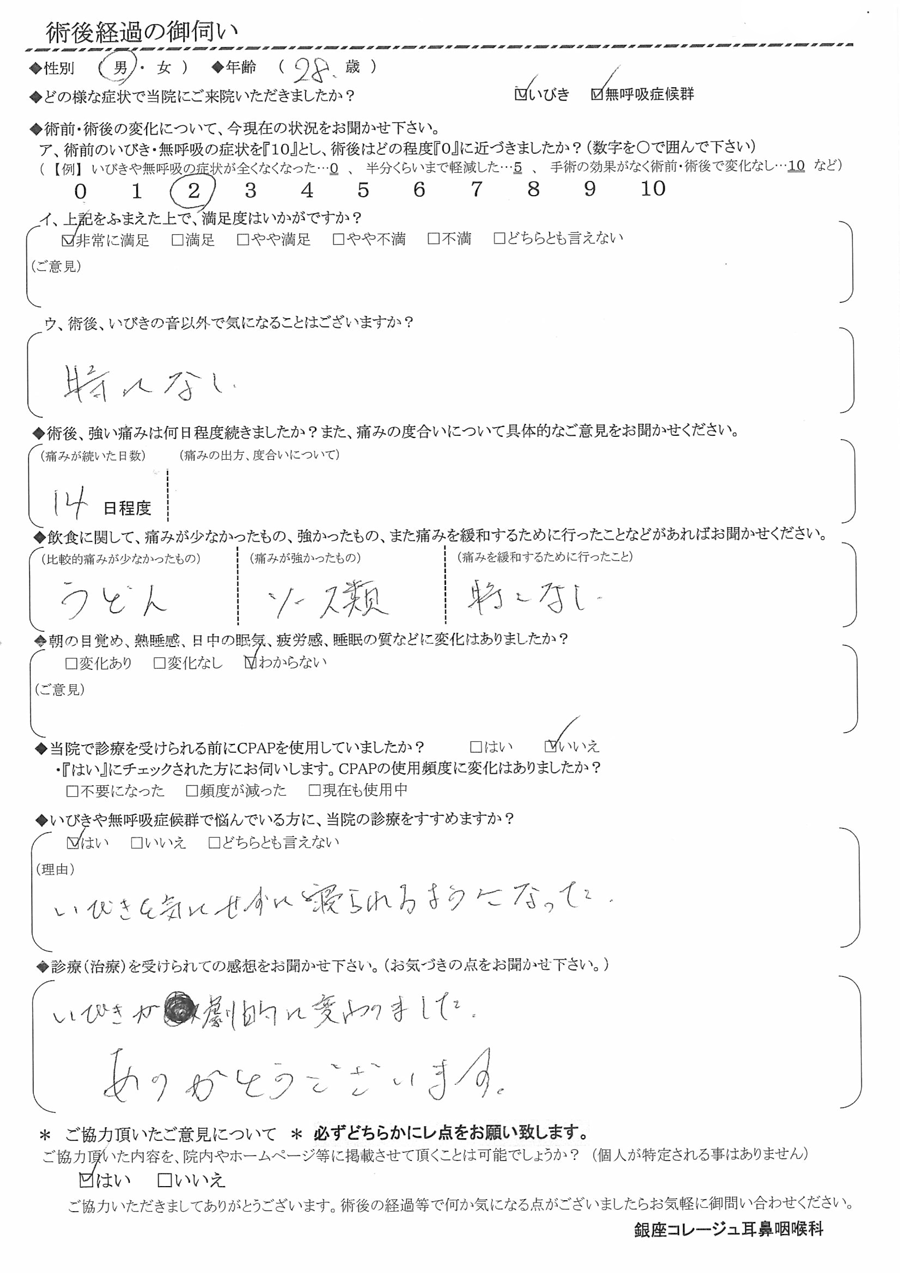 術後経過の御伺い
◆性別 (男・女) ◆年齢 (28.歳)
◆どの様な症状で当院にご来院いただきましたか? ☑いびき ☑無呼吸症候群
◆術前・術後の変化について、今現在の状況をお聞かせ下さい。
ア、術前のいびき・無呼吸の症状を『10』とし、術後はどの程度『0』に近づきましたか?(数字を○で囲んで下さい)
(【例】いびきや無呼吸の症状が全くなくなった…0 、 半分くらいまで軽減した…5 、 手術の効果がなく術前・術後で変化なし…10 など)
0 1 2 3 4 5 6 7 8 9 10
イ、上記をふまえた上で、満足度はいかがですか?
☑非常に満足 □満足 □やや満足 □やや不満 □不満 □どちらとも言えない
(ご意見)
ウ、術後、いびきの音以外で気になることはございますか?
特になし
◆術後、強い痛みは何日程度続きましたか?また、痛みの度合いについて具体的なご意見をお聞かせください。
(痛みが続いた日数) (痛みの出方、度合いについて)
14 日程度
◆飲食に関して、痛みが少なかったもの、強かったもの、また痛みを緩和するために行ったことなどがあればお聞かせください。
(比較的痛みが少なかったもの) (痛みが強かったもの) (痛みを緩和するために行ったこと)
うどん ソース類 特になし
◆朝の目覚め、熟睡感、日中の眠気、疲労感、睡眠の質などに変化はありましたか?
□変化あり □変化なし ☑わからない
(ご意見)
◆当院で診療を受けられる前にCPAPを使用していましたか? □はい ☑いいえ
・『はい』にチェックされた方にお伺いします。CPAPの使用頻度に変化はありましたか?
□不要になった □頻度が減った □現在も使用中
◆いびきや無呼吸症候群で悩んでいる方に、当院の診療をすすめますか?
☑はい □いいえ □どちらとも言えない
(理由)
いびきを気にせずに寝られるようになった.
◆診療(治療)を受けられての感想をお聞かせ下さい。(お気づきの点をお聞かせ下さい。)
いびきが劇的に変わりました.
ありがとうございます。
＊ ご協力頂いたご意見について ＊ 必ずどちらかにレ点をお願い致します。
ご協力頂いた内容を、院内やホームページ等に掲載させて頂くことは可能でしょうか? (個人が特定される事はありません)
☑はい □いいえ
ご協力いただきましてありがとうございます。術後の経過等で何か気になる点がございましたらお気軽に御問い合わせください。
銀座コレージュ耳鼻咽喉科